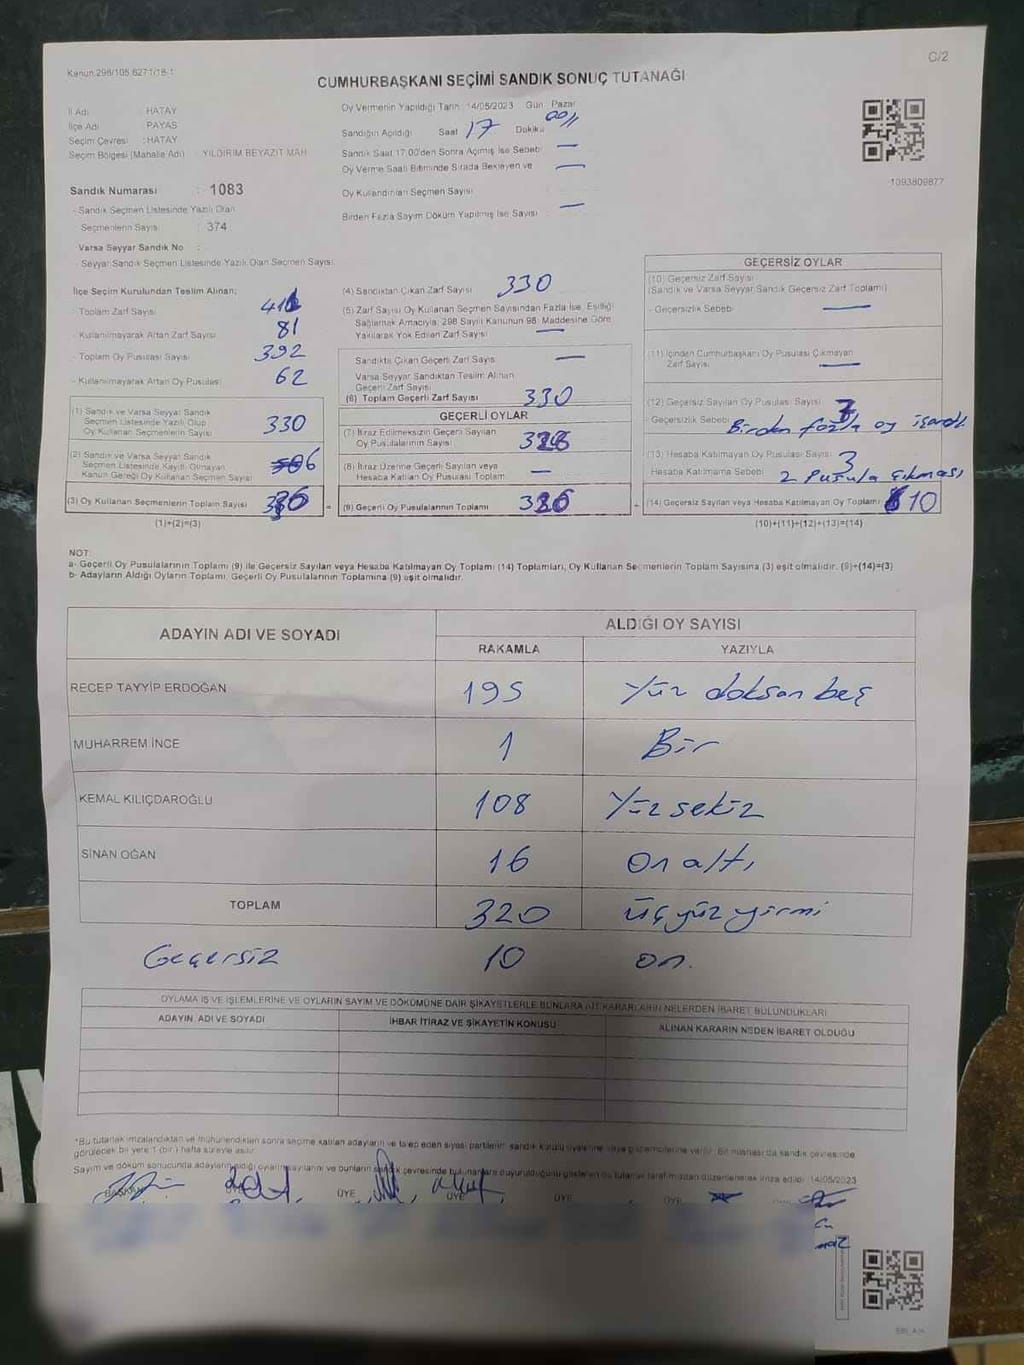 Kanun 298/105 6271/18-1
C/2
CUMHURBAŞKANI SEÇİMİ SANDIK SONUÇ TUTANAĞI
İl Adı : HATAY
İlçe Adı : PAYAS
Seçim Çevresi : HATAY
Seçim Bölgesi (Mahalle Adı) : YILDIRIM BEYAZIT MAH
Sandık Numarası : 1083
- Sandık Seçmen Listesinde Yazılı Olan
Seçmenlerin Sayısı : 374
Varsa Seyyar Sandık No :
- Seyyar Sandık Seçmen Listesinde Yazılı Olan Seçmen Sayısı:
Oy Vermenin Yapıldığı Tarih : 14/05/2023 Gün : Pazar
Sandığın Açıldığı Saat 17 Dakika
Sandık Saat 17:00'den Sonra Açılmış İse Sebebi —
Oy Verme Saati Bitiminde Sırada Bekleyen ve —
Oy Kullandırılan Seçmen Sayısı
Birden Fazla Sayım Döküm Yapılmış İse Sayısı : —
1093809877
İlçe Seçim Kurulundan Teslim Alınan;
- Toplam Zarf Sayısı
- Kullanılmayarak Artan Zarf Sayısı 81
- Toplam Oy Pusulası Sayısı 392
- Kullanılmayarak Artan Oy Pusulası 62
(1) Sandık ve Varsa Seyyar Sandık
Seçmen Listesinde Yazılı Olup
Oy Kullanan Seçmenlerin Sayısı 330
(2) Sandık ve Varsa Seyyar Sandık
Seçmen Listesinde Kayıtlı Olmayan
Kanun Gereği Oy Kullanan Seçmen Sayısı
(3) Oy Kullanan Seçmenlerin Toplam Sayısı
(1)+(2)=(3)
(4) Sandıktan Çıkan Zarf Sayısı 330
(5) Zarf Sayısı Oy Kullanan Seçmen Sayısından Fazla İse, Eşitliği
Sağlamak Amacıyla; 298 Sayılı Kanunun 98. Maddesine Göre
Yakılarak Yok Edilen Zarf Sayısı —
Sandıkta Çıkan Geçerli Zarf Sayısı —
Varsa Seyyar Sandıktan Teslim Alınan
Geçerli Zarf Sayısı
(6) Toplam Geçerli Zarf Sayısı 330
GEÇERLİ OYLAR
(7) İtiraz Edilmeksizin Geçerli Sayılan
Oy Pusulalarının Sayısı
(8) İtiraz Üzerine Geçerli Sayılan veya
Hesaba Katılan Oy Pusulası Toplam —
(9) Geçerli Oy Pusulalarının Toplamı
GEÇERSİZ OYLAR
(10) Geçersiz Zarf Sayısı
(Sandık ve Varsa Seyyar Sandık Geçersiz Zarf Toplamı)
- Geçersizlik Sebebi —
(11) İçinden Cumhurbaşkanı Oy Pusulası Çıkmayan
Zarf Sayısı —
(12) Geçersiz Sayılan Oy Pusulası Sayısı
Geçersizlik Sebebi Birden fazla oy işareti
(13) Hesaba Katılmayan Oy Pusulası Sayısı 3
Hesaba Katılmama Sebebi 2 Pusula çıkması
(14) Geçersiz Sayılan veya Hesaba Katılmayan Oy Toplamı 10
(10)+(11)+(12)+(13)=(14)
NOT:
a- Geçerli Oy Pusulalarının Toplamı (9) ile Geçersiz Sayılan veya Hesaba Katılmayan Oy Toplamı (14) Toplamları, Oy Kullanan Seçmenlerin Toplam Sayısına (3) eşit olmalıdır. (9)+(14)=(3)
b- Adayların Aldığı Oyların Toplamı, Geçerli Oy Pusulalarının Toplamına (9) eşit olmalıdır.
ADAYIN ADI VE SOYADI
ALDIĞI OY SAYISI
RAKAMLA YAZIYLA
RECEP TAYYİP ERDOĞAN 195 Yüz doksan beş
MUHARREM İNCE 1 Bir
KEMAL KILIÇDAROĞLU 108 Yüz sekiz
SİNAN OĞAN 16 On altı
TOPLAM 320 üç yüz yirmi
Geçersiz 10 on.
OYLAMA İŞ VE İŞLEMLERİNE VE OYLARIN SAYIM VE DÖKÜMÜNE DAİR ŞİKAYETLERLE BUNLARA AİT KARARLARIN NELERDEN İBARET BULUNDUKLARI
ADAYIN ADI VE SOYADI İHBAR İTİRAZ VE ŞİKAYETİN KONUSU ALINAN KARARIN NEDEN İBARET OLDUĞU
*Bu tutanak imzalandıktan ve mühürlendikten sonra seçime katılan adayların ve talep eden siyasi partilerin sandık kurulu üyelerine veya gözlemcilerine verilir. Bir nüshası da sandık çevresinde
görülecek bir yere 1 (bir) hafta süreyle asılır.
Sayım ve döküm sonucunda adayların aldığı oyların sayılarını ve bunların sandık çevresinde bulunanlara duyurulduğunu gösteren bu tutanak tarafımızdan düzenlenerek imza edildi. 14/05/2023
BAŞKAN ÜYE ÜYE ÜYE ÜYE ÜYE